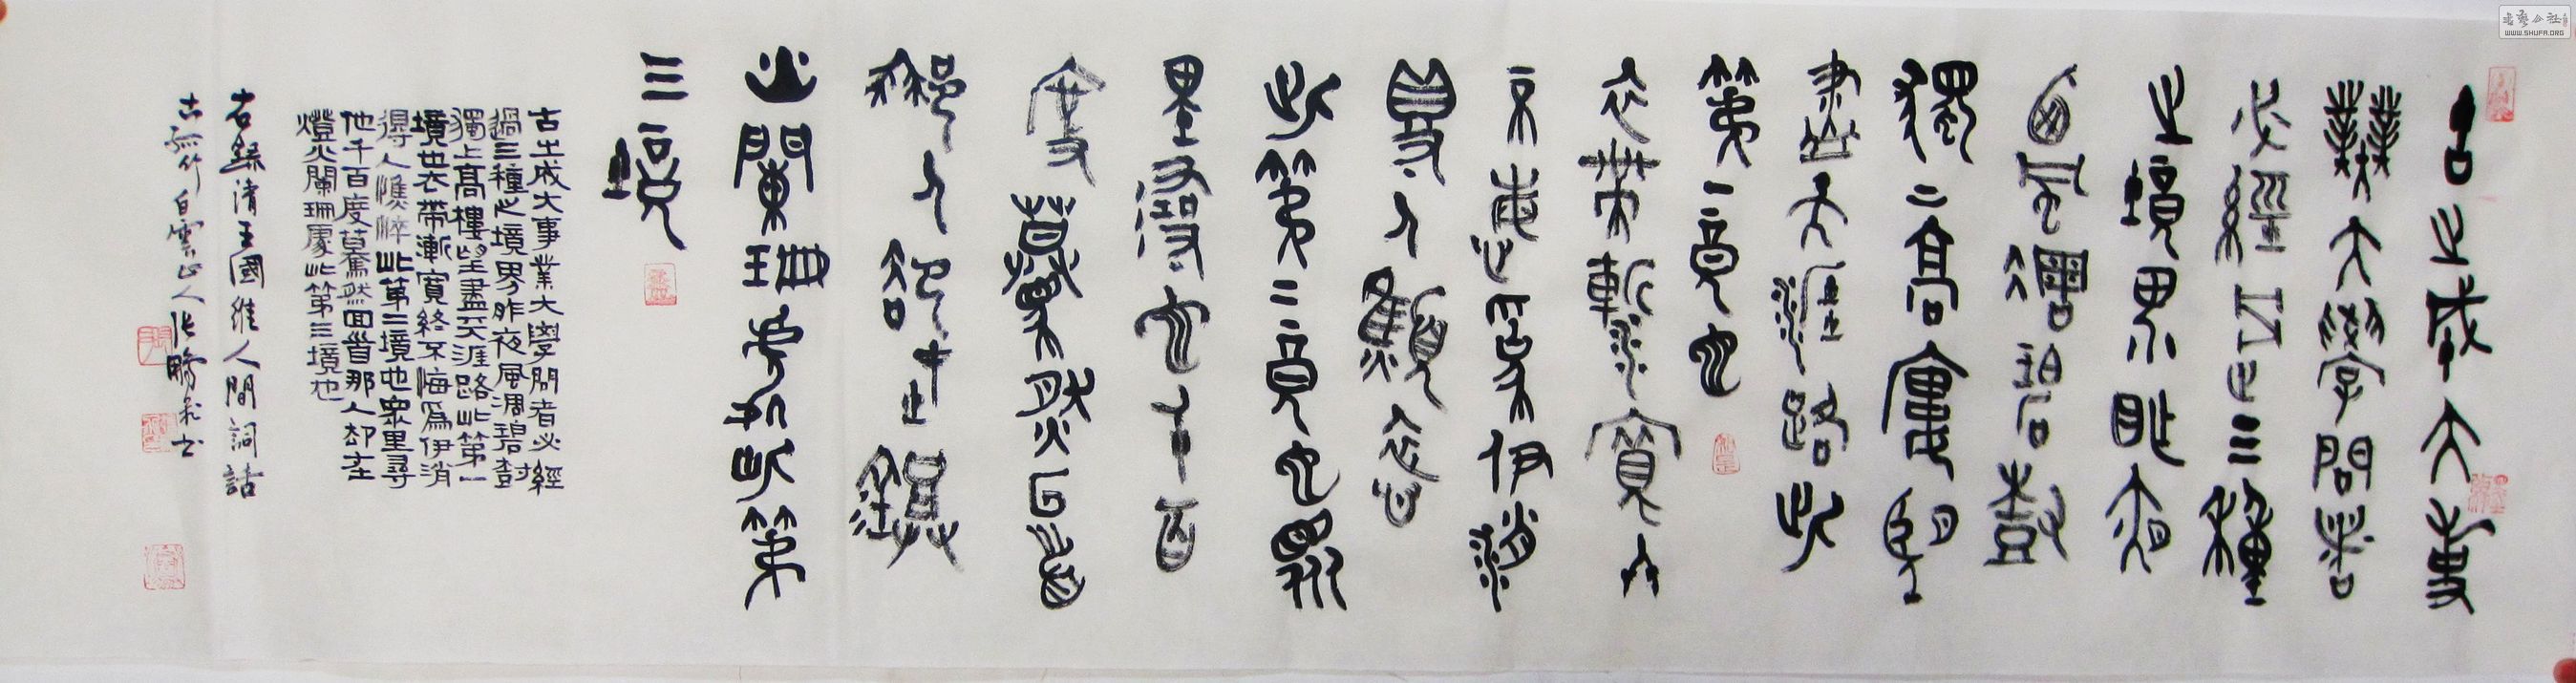 古之成大事
業大學問者
必經過三種
之境界昨夜
西風凋碧樹
獨上高樓望
盡天涯路此
第一境也
衣帶漸寬終
不悔為伊消
得人顦顇
此第二境也眾
里尋他千百
度驀然回首
那人卻在鐙
火闌珊處此第
三境
古之成大事業大學問者必經
過三種之境界昨夜風凋碧樹
獨上高樓望盡天涯路此第一
境也衣帶漸寬終不悔為伊消
得人憔悴此第二境也眾里尋
他千百度驀然回首那人却在
燈火闌珊處此第三境也
右錄清王國維人間詞話
古孤竹白雲山人張勝永書
WWW.SHUFA.ORG